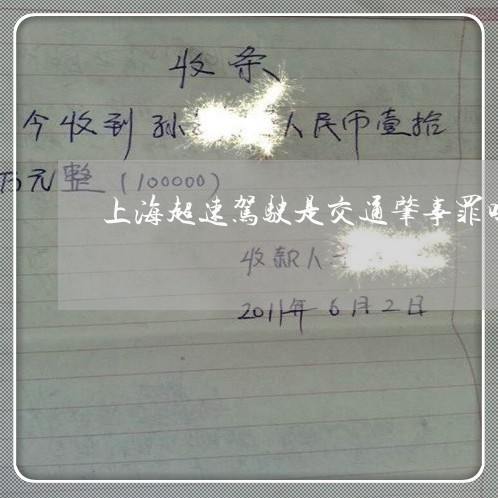 收条
今收到孙 人民币壹拾
万元整（100000）
上海超速驾驶是交通肇事罪
收款人
2011年6月2日